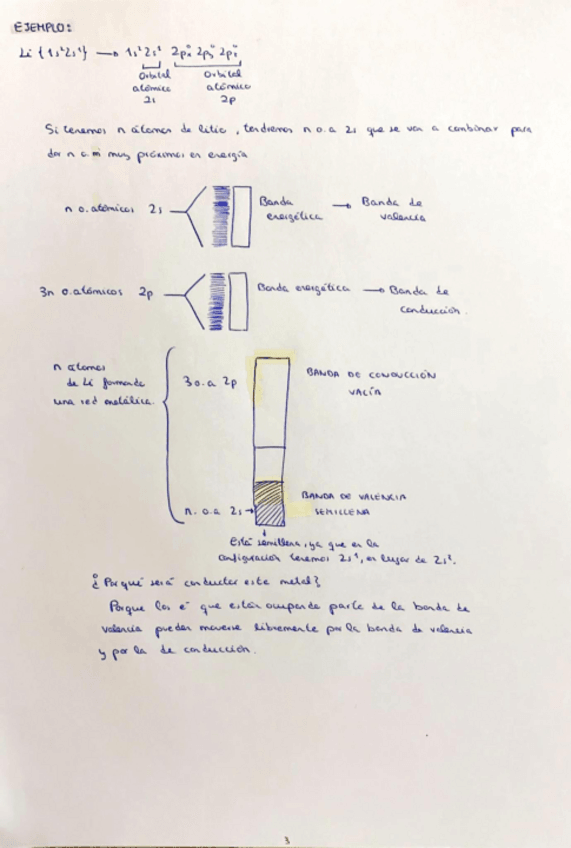 EJEMPLO:
Li {1s²2s¹} → 1s²2s¹ 2px⁰ 2py⁰ 2pz⁰
Orbital atómico 2s
Orbital atómico 2p
Si tenemos n átomos de litio, tendremos n o.a 2s que se van a combinar para
dar n o.m muy próximos en energía
n o.atómicos 2s
Banda energética → Banda de valencia
3n o.atómicos 2p
Banda energética → Banda de conducción.
n átomos
de Li formando
una red metálica.
3 o.a 2p
BANDA DE CONDUCCIÓN
VACÍA
n. o.a 2s →
BANDA DE VALENCIA
SEMILLENA
Está semillena, ya que en la
configuración tenemos 2s¹, en lugar de 2s².
¿Por qué será conductor este metal?
Porque los e⁻ que están ocupando parte de la banda de
valencia pueden moverse libremente por la banda de valencia
y por la de conducción.
3